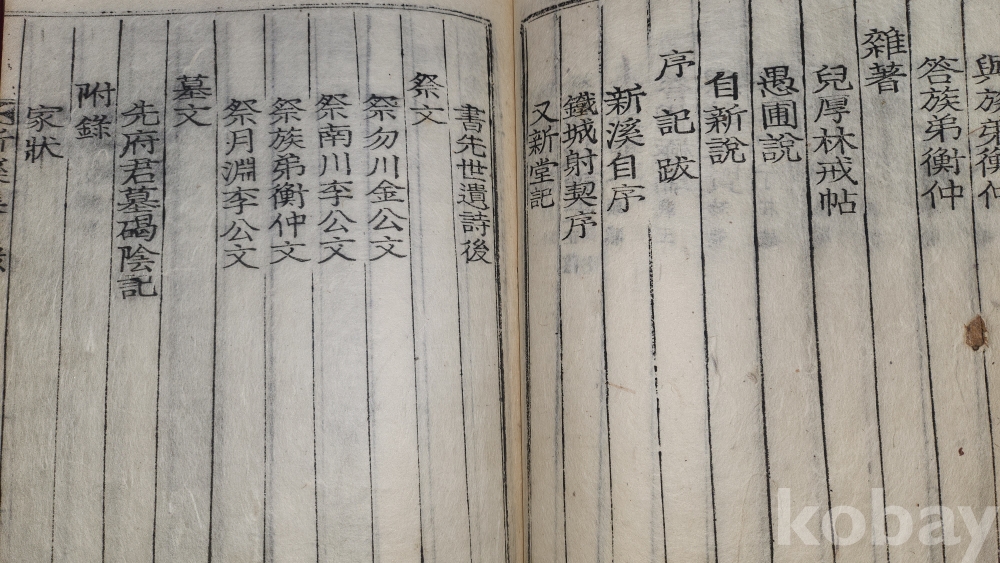 與族弟衡仲
答族弟衡仲
雜著
兒厚林戒帖
愚圃說
自新說
序 記 跋
新溪自序
鐵城射契序
又新堂記
書先世遺詩後
祭文
祭勿川金公文
祭南川李公文
祭族弟衡仲文
祭月淵李公文
墓文
先府君墓碣陰記
附錄
家狀
kobay